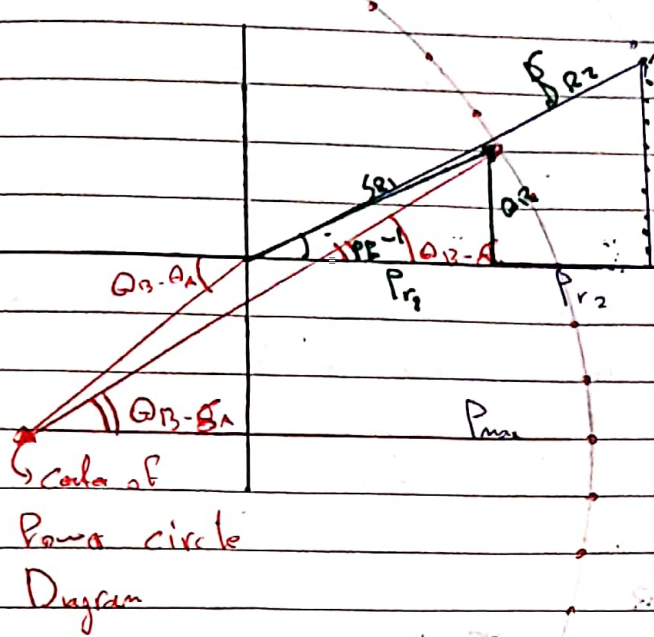 S R2
SR1
QR
PF⁻¹
θB-δ
θB-θA
Pr1
Pr2
θB-δA
Pmax
Center of
Power circle
Diagram